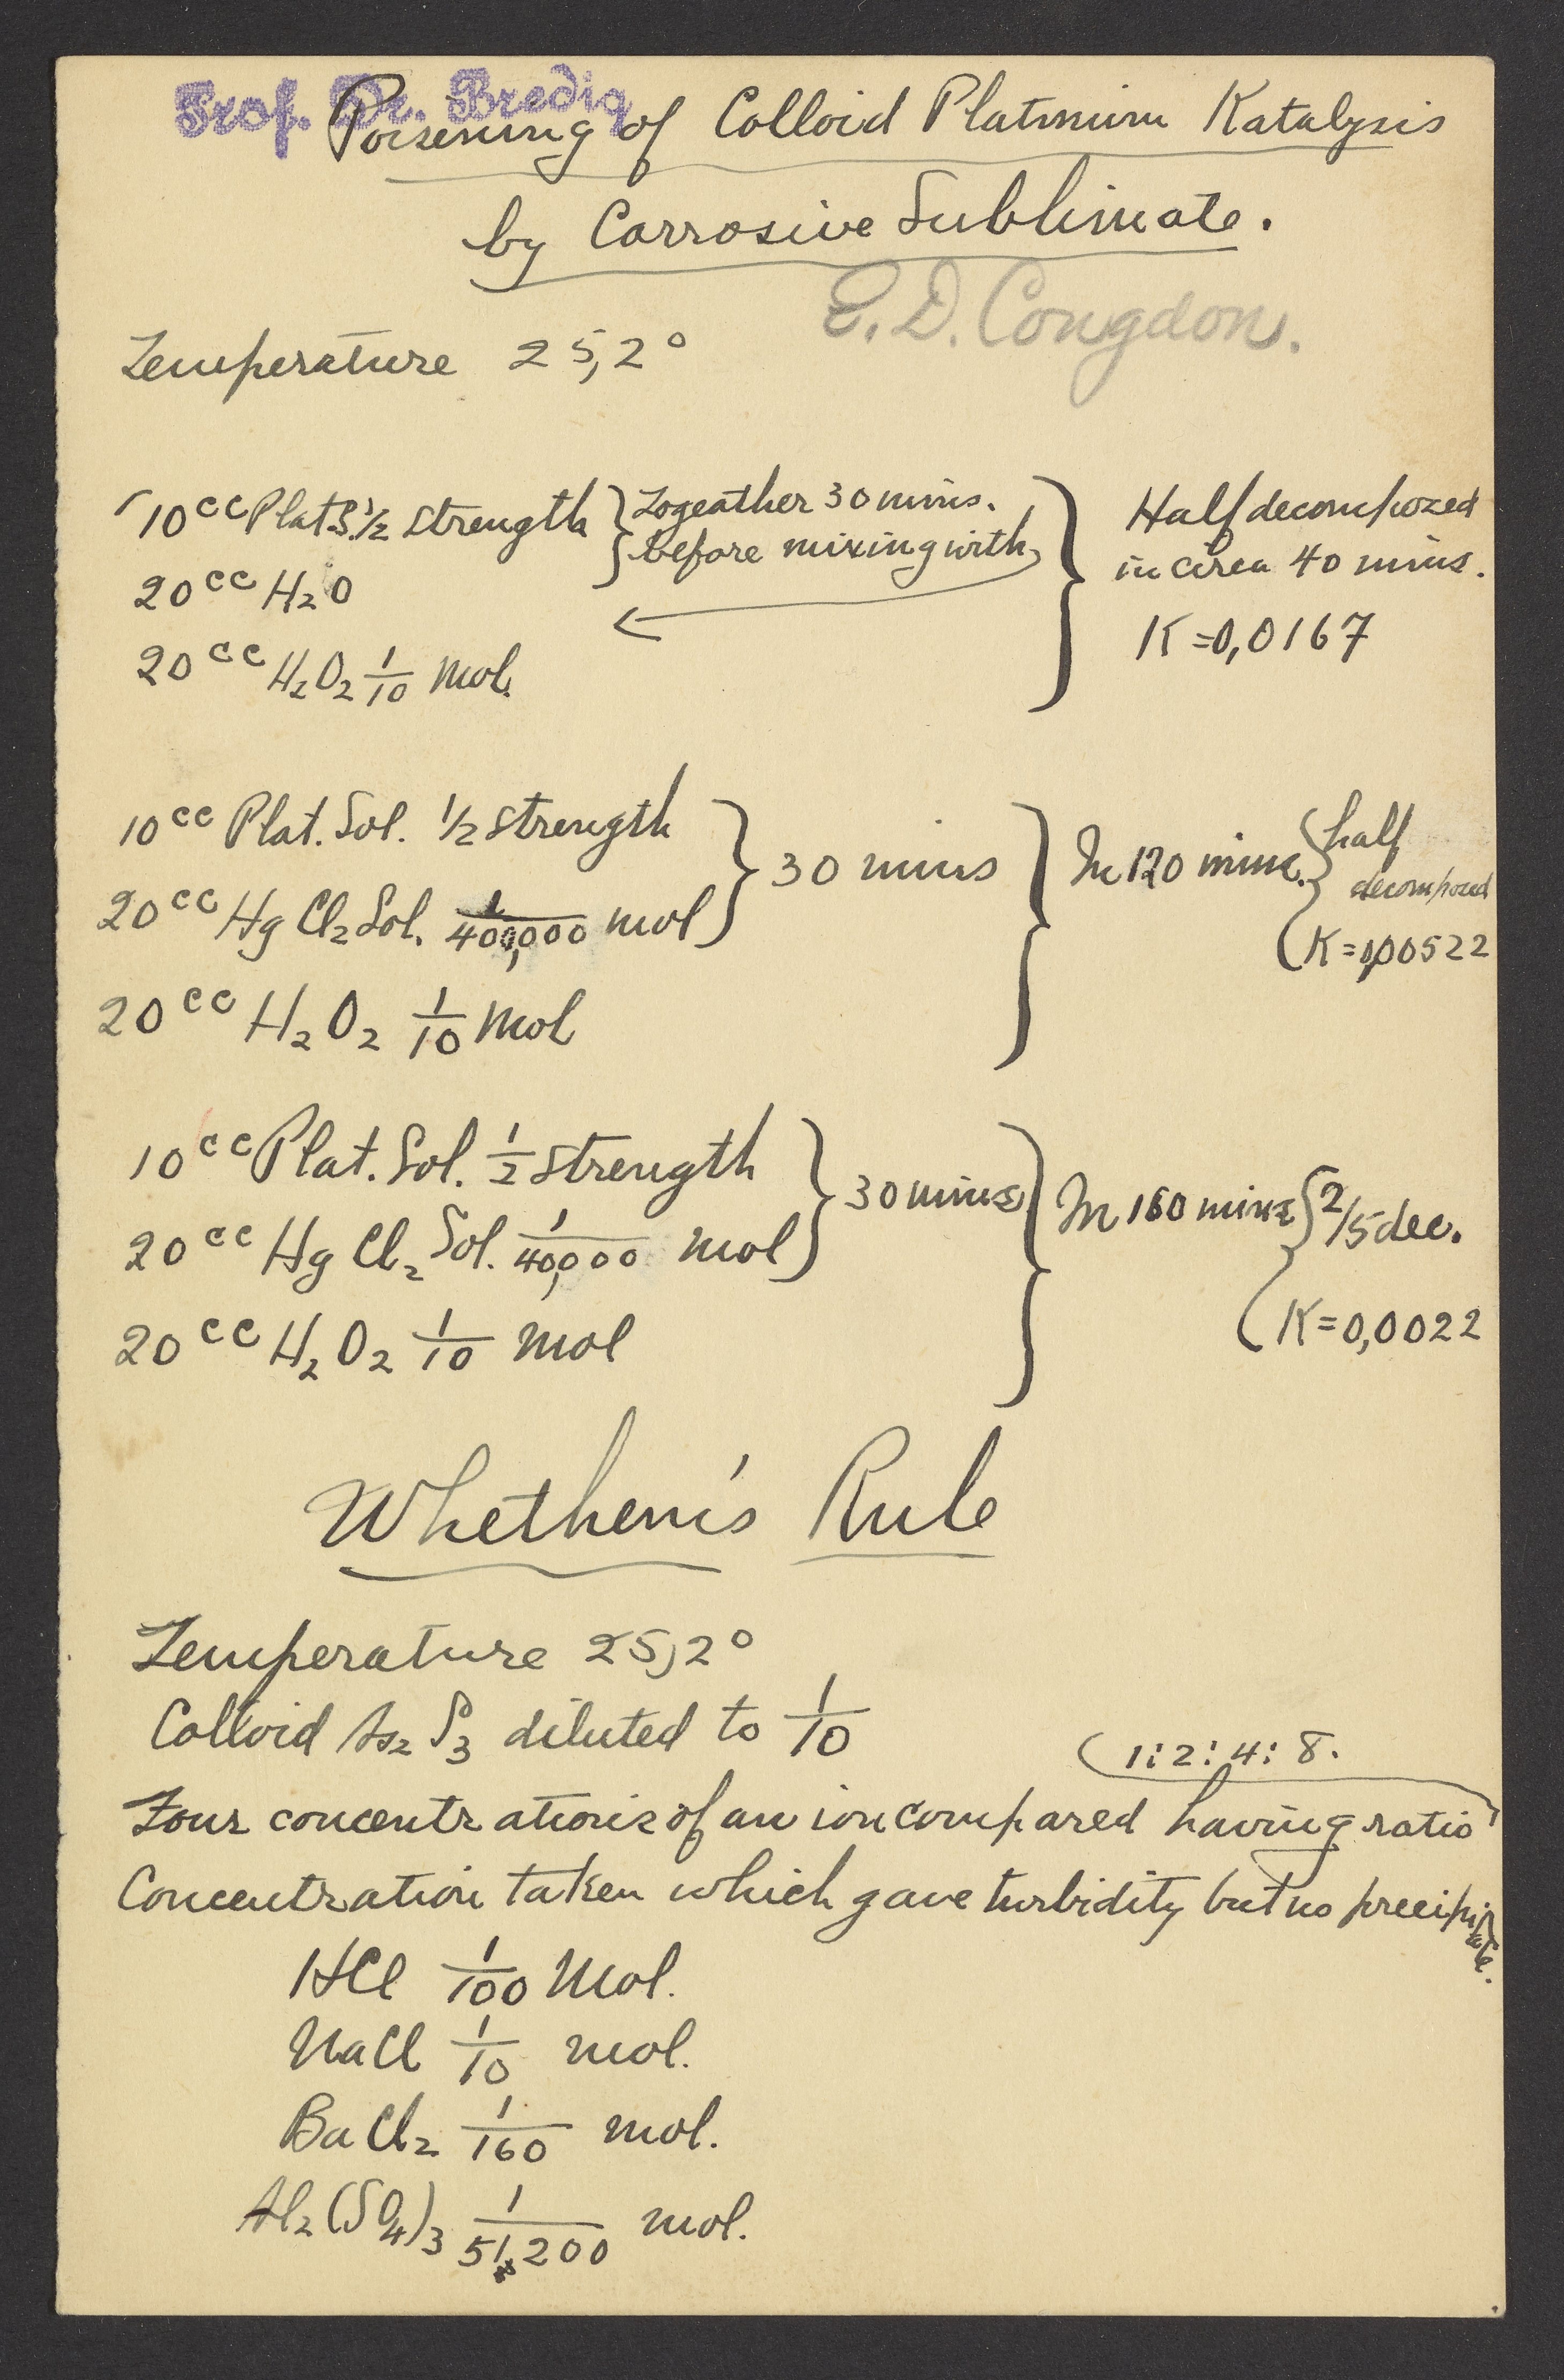 Prof. Dr. Bredig
Poisening of Colloid Platinium Katalysis
by Corrosive Sublimate.
E. D. Congdon.
Temperature 25,2°
10cc Plat S. 1/2 strength } Togeather 30 mins. before mixing with } Half decomposed
in circa 40 mins.
20cc H2O
K=0,0167
20cc H2O2 1/10 mol.
10cc Plat. Sol. 1/2 strength } 30 mins } In 120 mins. { half decomposed
20cc Hg Cl2 Sol. 1/400,000 mol
K=0,00522
20cc H2O2 1/10 mol
10cc Plat. Sol. 1/2 strength } 30 mins } In 160 mins { 2/5 dec.
20cc Hg Cl2 Sol. 1/40,000 mol
K=0,0022
20cc H2O2 1/10 mol
Whethem's Rule
Temperature 25,2°
Colloid As2 S3 diluted to 1/10
1:2:4:8.
Four concentrations of an ion compared having ratio
Concentration taken which gave turbidity but no precipitate.
HCl 1/100 Mol.
NaCl 1/10 mol.
Ba Cl2 1/160 mol.
Al2(SO4)3 1/51,200 mol.